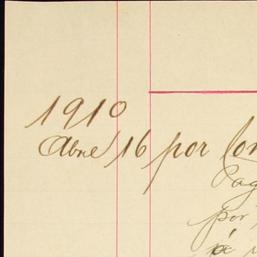 1910
Abril 16 por Con
Pag
por
á